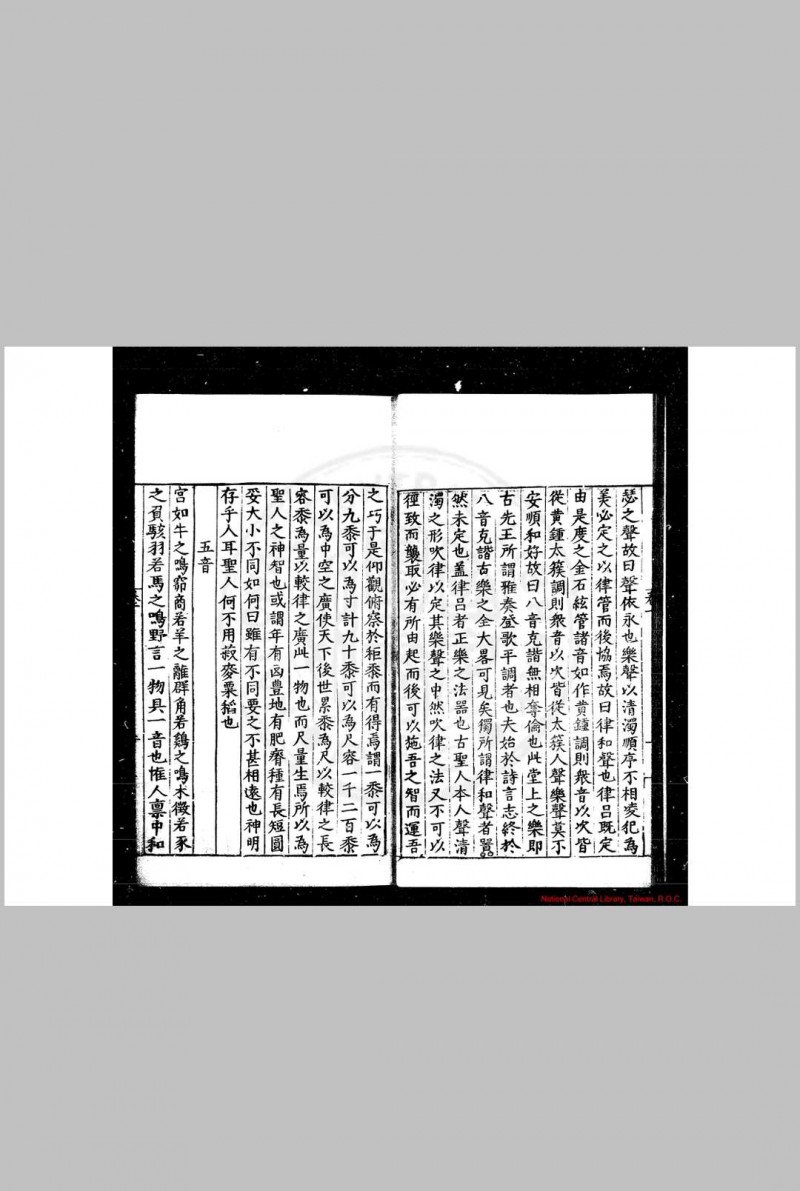 瑟之聲故曰聲依永也樂聲以清濁順序不相凌犯為
美必定之以律管而後協焉故曰律和聲也律呂既定
由是度之金石絃管諸音如作黄鍾調則衆音以次皆
從黄鍾太簇調則衆音以次皆從太簇人聲樂聲莫不
安順和好故曰八音克諧無相奪倫也此堂上之樂即
古先王所謂雅奏登歌平調者也夫始於詩言志終於
八音克諧古樂之全大畧可見矣獨所謂律和聲者
然未定也盖律呂者正樂之法器也古聖人本人聲清
濁之形吹律以定其樂聲之中然吹律之法又不可以
徑致而襲取必有所由起而後可以施吾之智而運吾
之巧于是仰觀俯察於秬黍而有得焉謂一黍可以為
分九黍可以為寸計九十黍可以為尺容一千二百黍
可以為中空之廣使天下後世累黍為尺以較律之長
容黍為量以較律之廣此一物也而尺量生焉所以為
聖人之神智也或謂年有凶豊地有肥瘠種有長短圓
妥大小不同如何曰雖有不同要之不甚相遠也神明
存乎人耳聖人何不用菽麥粟稻也
五音
宮如牛之鳴窌商若羊之離群角若鷄之鳴木徵若豕
之負駭羽若馬之鳴野言一物具一音也惟人稟中和
National Central Library, Taiwan, R.O.C.